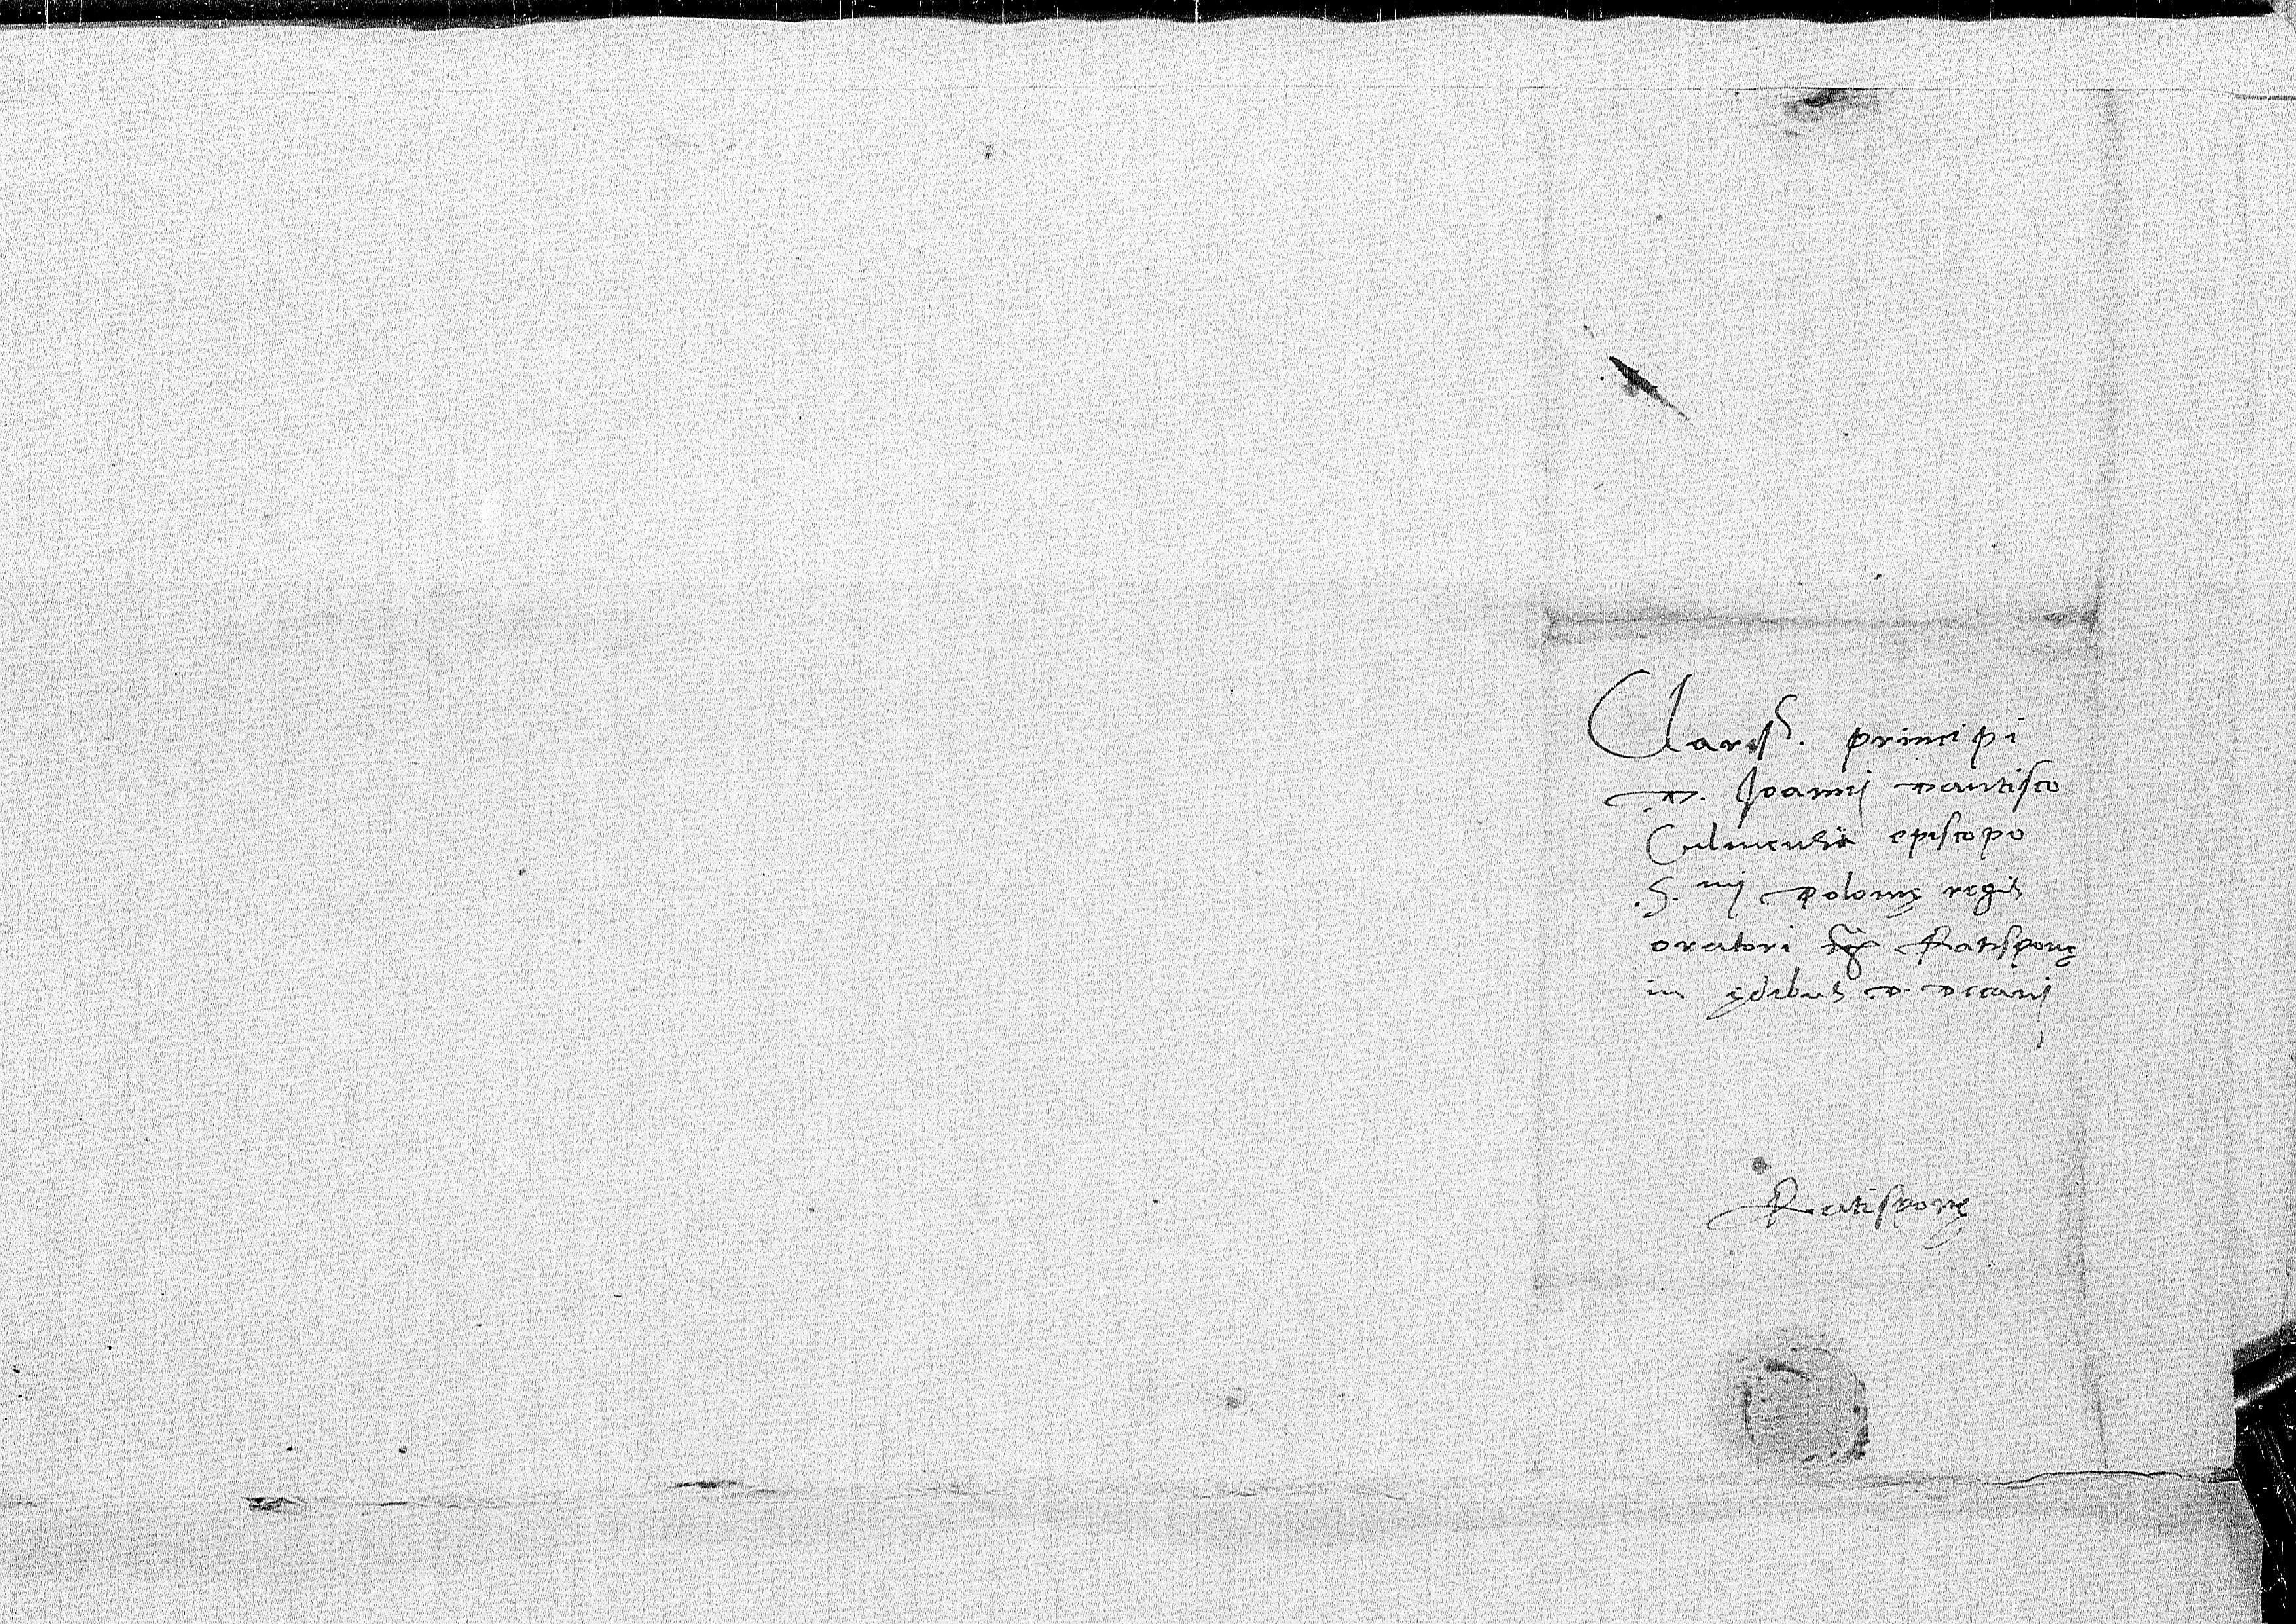 Clariss. principi
D. Joannj Dantisco
Culmensi episcopo
S. mj Polonię regis
oratori Ratisponę
in ędibus D. Decanj
Ratisponę